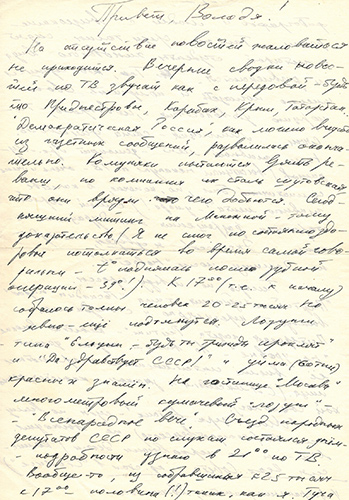 Привет, Володя!
На отсутствие новостей жаловаться
не приходится. Вечерние сводки новос-
тей по ТВ звучат как с передовой - будь
то Приднестровье, Карабах, Крым, Татарстан.
"Демократическая Россия", как можно видеть
из газетных сообщений, развалилась оконча-
тельно. Коммуняки пытаются взять ре-
ванш, но комплекция их столь шутовская
что они вряд ли чего добьются. Сегод-
няшний митинг на Манежной - тому
доказательство (Я не смог по состоянию здо-
ровья потолкаться во время самой гово-
рильни - t° поднялась после зубной
операции - 39°!). К 17⁰⁰ (т.е. к началу)
собралось только человек 20-25 тысяч. Но
явно ещё подтянутся. Лозунги
типа "Ельцин - будь ты трижды проклят"
и "Да здравствует СССР!" и уйма (сотни)
красных знамён. На гостинице "Москва"
многометровый кумачевый лозунг -
- "Всенародное вече". Съезд народных
депутатов СССР по слухам состоялся днём
- подробности узнаю в 21⁰⁰ по ТВ
Вообще-то, из собравшихся к 25 тысяч
с 17⁰⁰ половина (!) таких как я. Куча